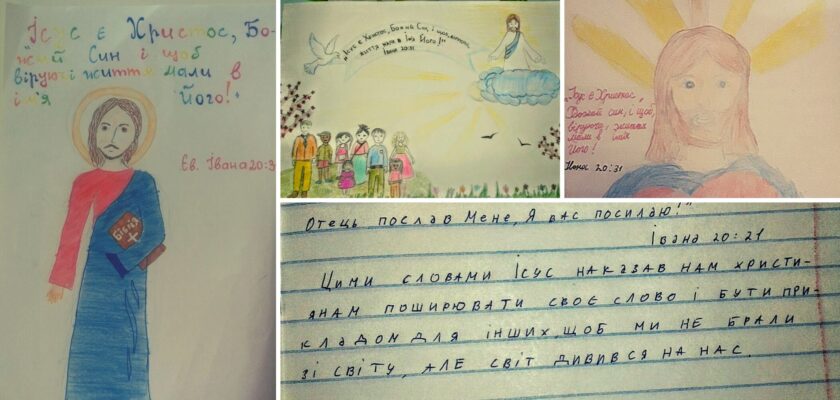 Ісус є Христос, Бо-
жий Син і щоб
віруючі життя мали в
ім'я Його!
Єв. Івана 20:3
Біблія
"Ісус є Христос, Божий Син, і
життя мали в Ім'я Його!"
Івана 20:31
"Ісус є Христос,
Божий син, і щоб,
віруючі, життя
мали в ім'я
Його!
Івана 20:31
Отець послав Мене, Я вас посилаю!"
Івана 20:21
Цими словами Ісус наказав нам христи-
янам поширювати своє слово і бути при-
кладом для інших, щоб ми не брали
зі світу, але світ дивився на нас.